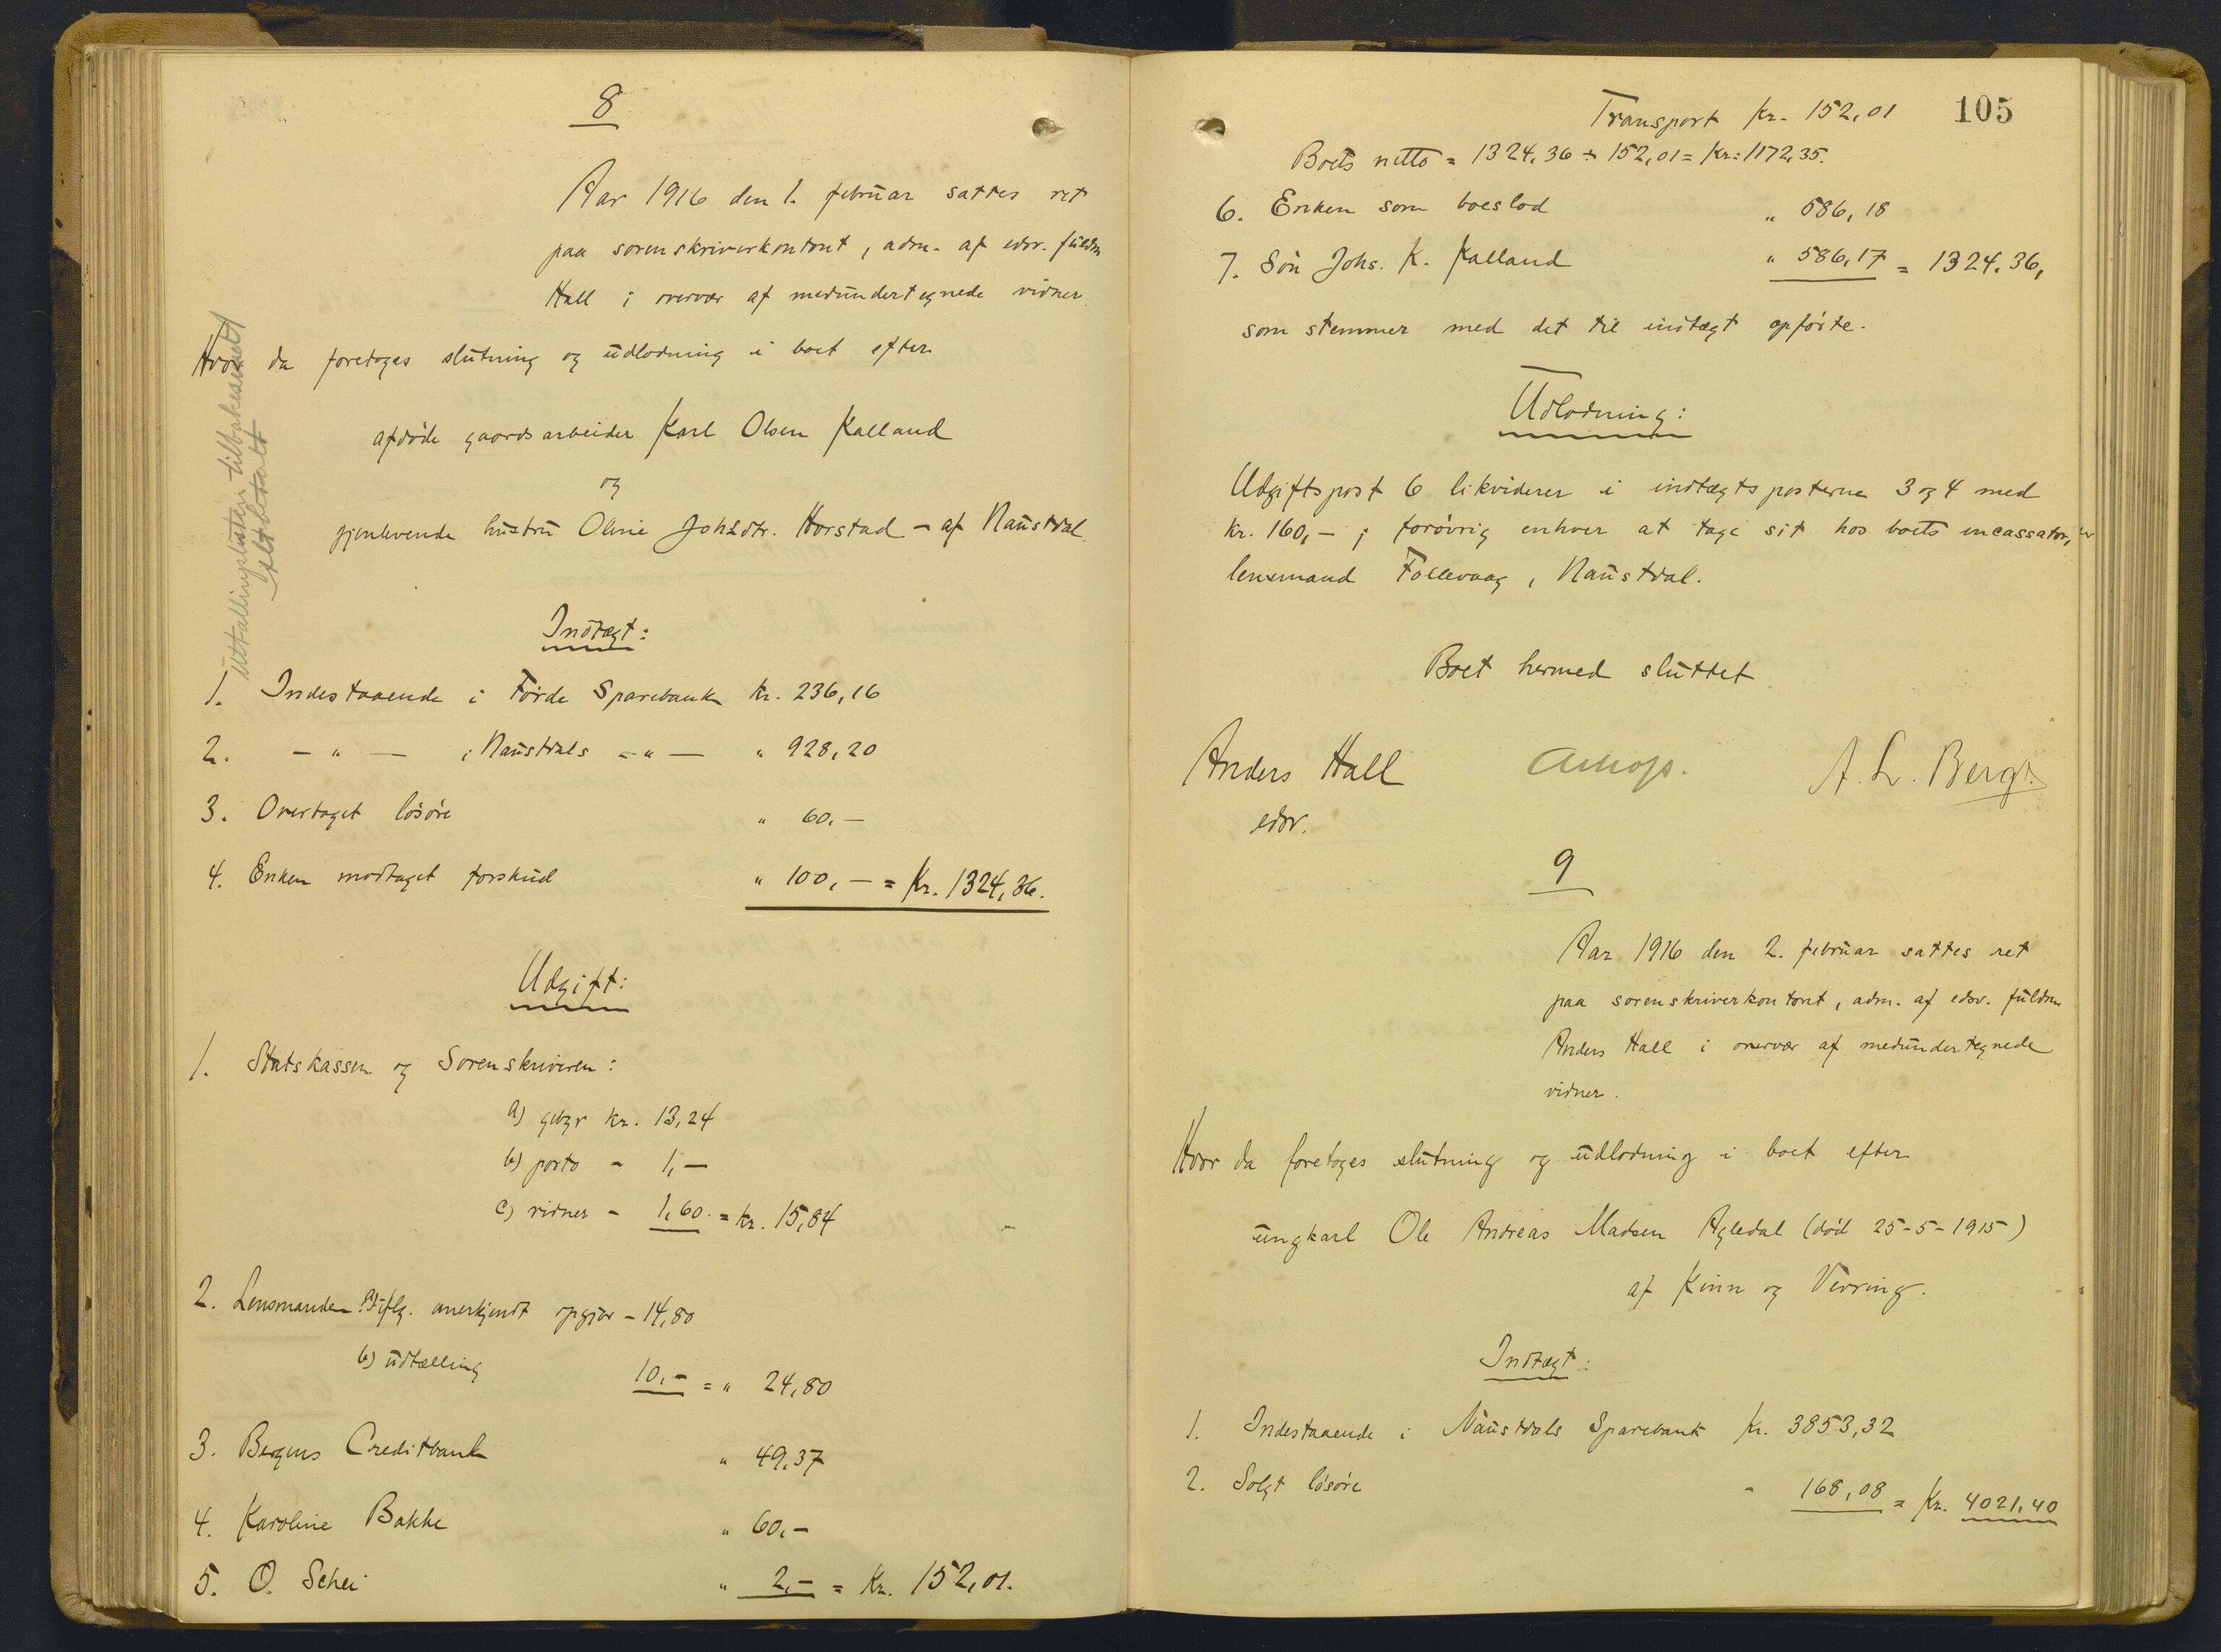 8
Aar 1916 den 1. februar sattes ret
paa sorenskriverkontoret, adm. af edsv. fuldm
Hall i overvær af medundertegnede vidner.
Hvor da foretoges slutning og udlodning i boet efter
afdøde gaardsarbeider Karl Olsen Kalland
og
gjenlevende hustru Oline Johsdtr. Horstad - af Naustdal.
Uttallingslisten tilbakesendt
alt utbetalt
Indtægt:
1. Indestaaende i Førde Sparebank kr. 236,16
2. - " - i Naustdals - " - " 928,20
3. Overtaget løsøre " 60,-
4. Enken modtaget forskud " 100,- = Kr. 1324,36.
Udgift:
1. Statskassen og Sorenskriveren:
a) gebyr kr. 13,24
b) porto - 1,-
c) vidner - 1,60. = kr. 15,84
2. Lensmanden a) iflg. anerkjendt opgjør - 14,80
b) udtælling 10,- = " 24,80
3. Bergens Creditbank " 49,37
4. Karoline Bakke " 60,-
5. O. Schei " 2,- = Kr. 152,01.
105
Transport Kr. 152,01
Boets netto = 1324,36 ÷ 152,01 = Kr. 1172,35.
6. Enken som boeslod " 586,18
7. Søn Johs. K. Kalland " 586,17 = 1324,36,
som stemmer med det til indtægt opførte.
Udlodning:
Udgiftspost 6 likviderer i indtægtsposterne 3 og 4 med
kr. 160,- ; forøvrig enhver at tage sit hos boets incassator,
lensmand Follevaag, Naustdal.
Boet hermed sluttet
Anders Hall A. L. Berg.
edsv.
9
Aar 1916 den 2. februar sattes ret
paa sorenskriverkontoret, adm. af edsv. fuldm
Anders Hall i overvær af medundertegnede
vidner.
Hvor da foretoges slutning og udlodning i boet efter
ungkarl Ole Andreas Madsen Agledal (død 25-5-1915)
af Kinn og Vevring.
Indtægt:
1. Indestaaende i Naustdals Sparebank kr. 3853,32
2. Solgt løsøre - 168,08 = Kr. 4021,40